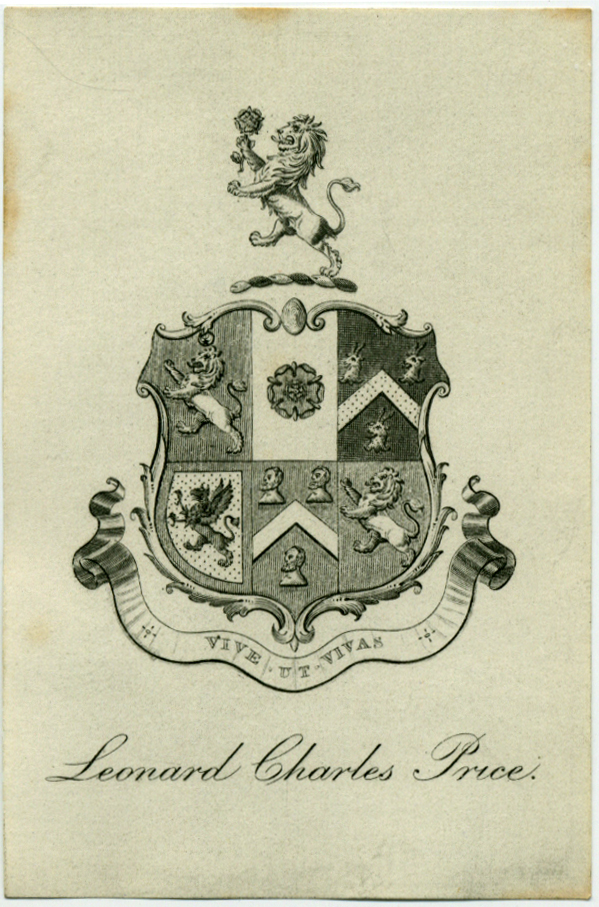 VIVE · UT · VIVAS
Leonard Charles Price.